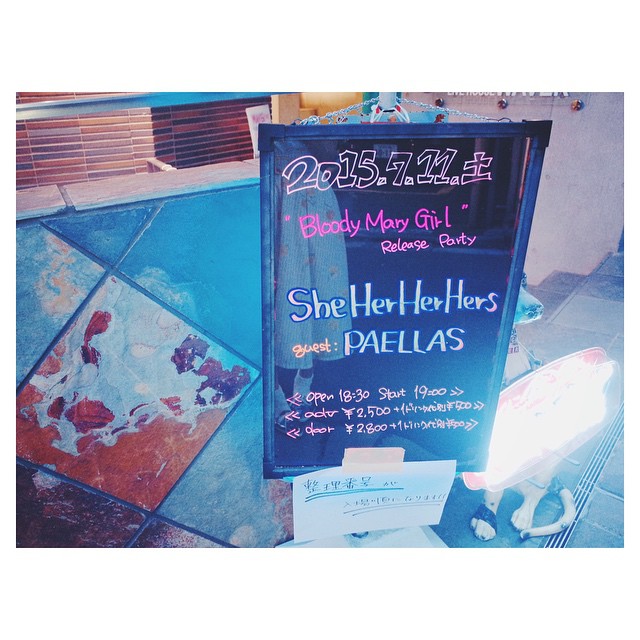 2015.7.11.土
"Bloody Mary Girl"
Release Party
SheHerHerHers
guest: PAELLAS
<< open 18:30 Start 19:00 >>
<< adv ¥2,500 +1ドリンク代別¥500 >>
<< door ¥2,800 +1ドリンク代別¥500 >>
整理番号